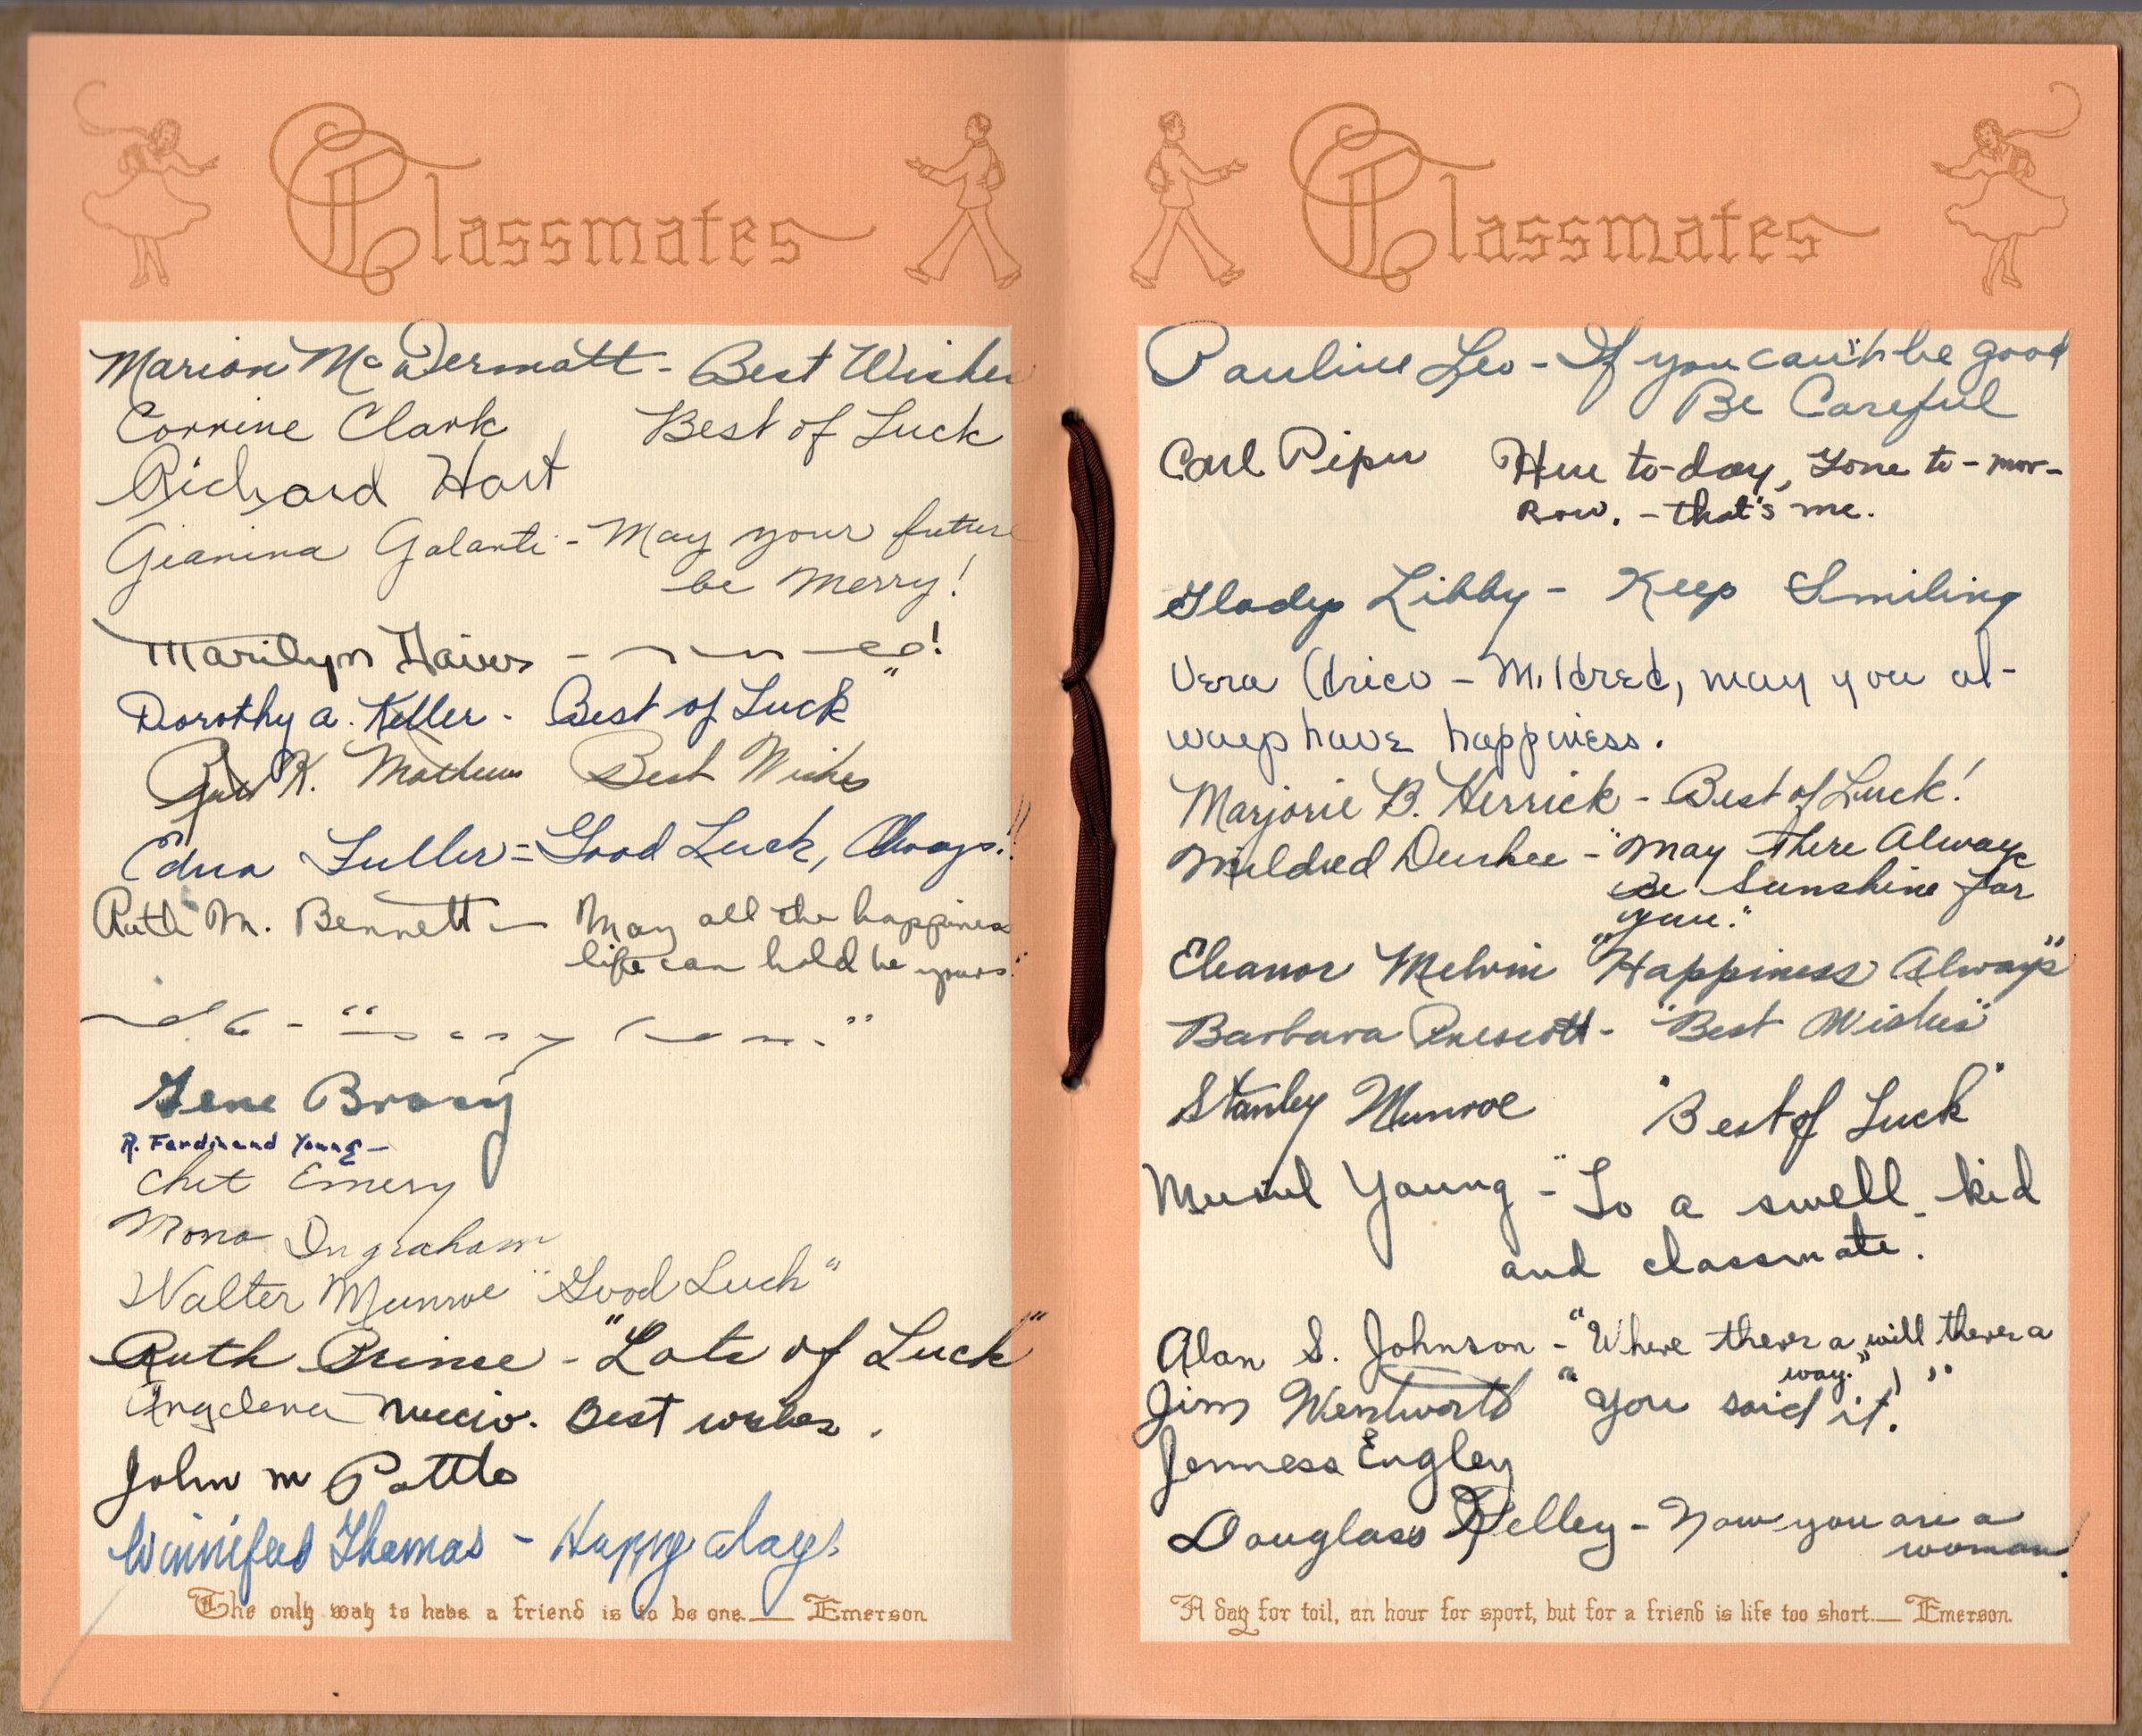 Classmates
Marion McDermott - Best Wishes
Corrine Clark Best of Luck
Richard Hart
Gianina Galanti - May your future
be Merry!
Marilyn
Dorothy A. Keller - Best of Luck"
K. Mathews Best Wishes
Edna Fuller = Good Luck, Always!!
Ruth M. Bennett - May all the happiness
life can hold be yours."
Gene Bracy
R. Ferdinand Young -
Chet Emery
Mona Ingraham
Walter Munroe "Good Luck"
Ruth Prince - "Lots of Luck"
Angelena Nuccio. Best wishes.
John M Pattle
Winnifred Thomas - Happy days!
The only way to have a friend is to be one. — Emerson
Classmates
Pauline Leo - If you can't be good
Be Careful
Carl Piper Here to-day, Gone to-mor-
Row. - that's me.
Gladys Libby - Keep Smiling
Vera - Mildred, may you al-
ways have happiness.
Marjorie B. Herrick - Best of Luck!
Mildred Durkee - "May there Always
Be Sunshine for
you."
Eleanor Melvin "Happiness Always"
Barbara Prescott - "Best Wishes"
Stanley Munroe "Best of Luck"
Muriel Young - "To a swell kid
and classmate.
Alan S. Johnson - "Where theres a will theres a
way."
Jim Wentworth "You said it!"
Jenness Engley
Douglass Kelley - Now you are a
woman.
A day for toil, an hour for sport, but for a friend is life too short. — Emerson.